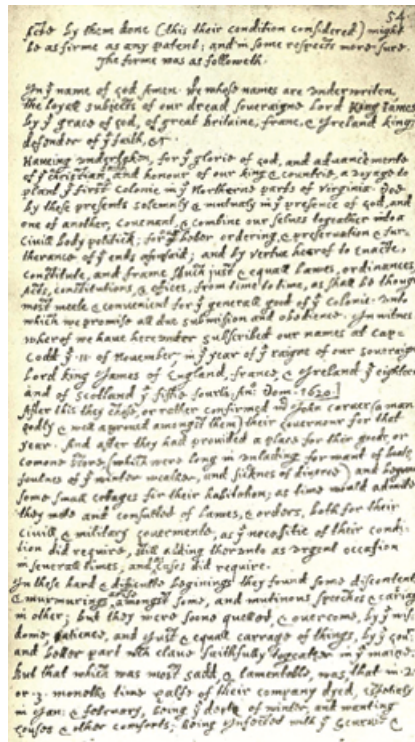 54
acts by them done (this their condition considered) might
be as firme as any patent; and in some respects more sure.
The forme was as followeth.
In yᵉ name of god Amen. We whose names are underwriten,
the loyall subjects of our dread soveraigne Lord King James
by yᵉ grace of god, of great Britaine, franc, & Ireland king,
defender of yᵉ faith, &c
Haveing undertaken, for yᵉ glorie of god, and advancemente
of yᵉ christian faith and honour of our king & countrie, a voyage to
plant yᵉ first colonie in yᵉ Northerne parts of Virginia. Doe
by these presents solemnly & mutualy in yᵉ presence of god, and
one of another, covenant, & combine our selves togeather into a
civill body politick; for our better ordering, & preservation & fur-
therance of yᵉ ends aforesaid; and by vertue hearof to enacte,
constitute, and frame such just & equall lawes, ordinances,
Acts, constitutions, & offices, from time to time, as shall be thought
most meete & convenient for yᵉ generall good of yᵉ colonie: unto
which we promise all due submission and obedience. In witnes
wherof we have hereunder subscribed our names at cap-
Codd yᵉ 11 of November, in yᵉ year of yᵉ raigne of our soveraigne
Lord king James of England, franc, & Ireland yᵉ eighteen
and of Scotland yᵉ fiftie fourth. Ano: Dom. 1620.]
After this they chose, or rather confirmed mr John carver (a man
godly & well approved amongst them) their Governour for that
year. And after they had provided a place for their goods, or
comone store, (which were long in unlading for want of boats,
foulnes of yᵉ winter weather, and sicknes of diverce) and begune
some small cottages for their habitation; as time would admitte
they mette and consulted of lawes, & orders, both for their
civill & military Govermente, as yᵉ necessitie of their condi-
tion did require, still adding therunto as urgent occasion
in severall times, and as cases did require.
In these hard & difficulte beginings they found some discontents
& murmurings arise amongst some, and mutinous speeches & cariags
in other; but they were soone quelled, & overcome, by yᵉ wis-
dome, patience, and just & equall carrage of things, by yᵉ Govr
and better part wch clave faithfully togeather in yᵉ maine.
But that which was most sadd, & lamentable, was, that in 2.
or 3. moneths time halfe of their company dyed, espetialy
in Jan: & february, being yᵉ depth of winter, and wanting
houses & other comforts; being infected with yᵉ scurvie &